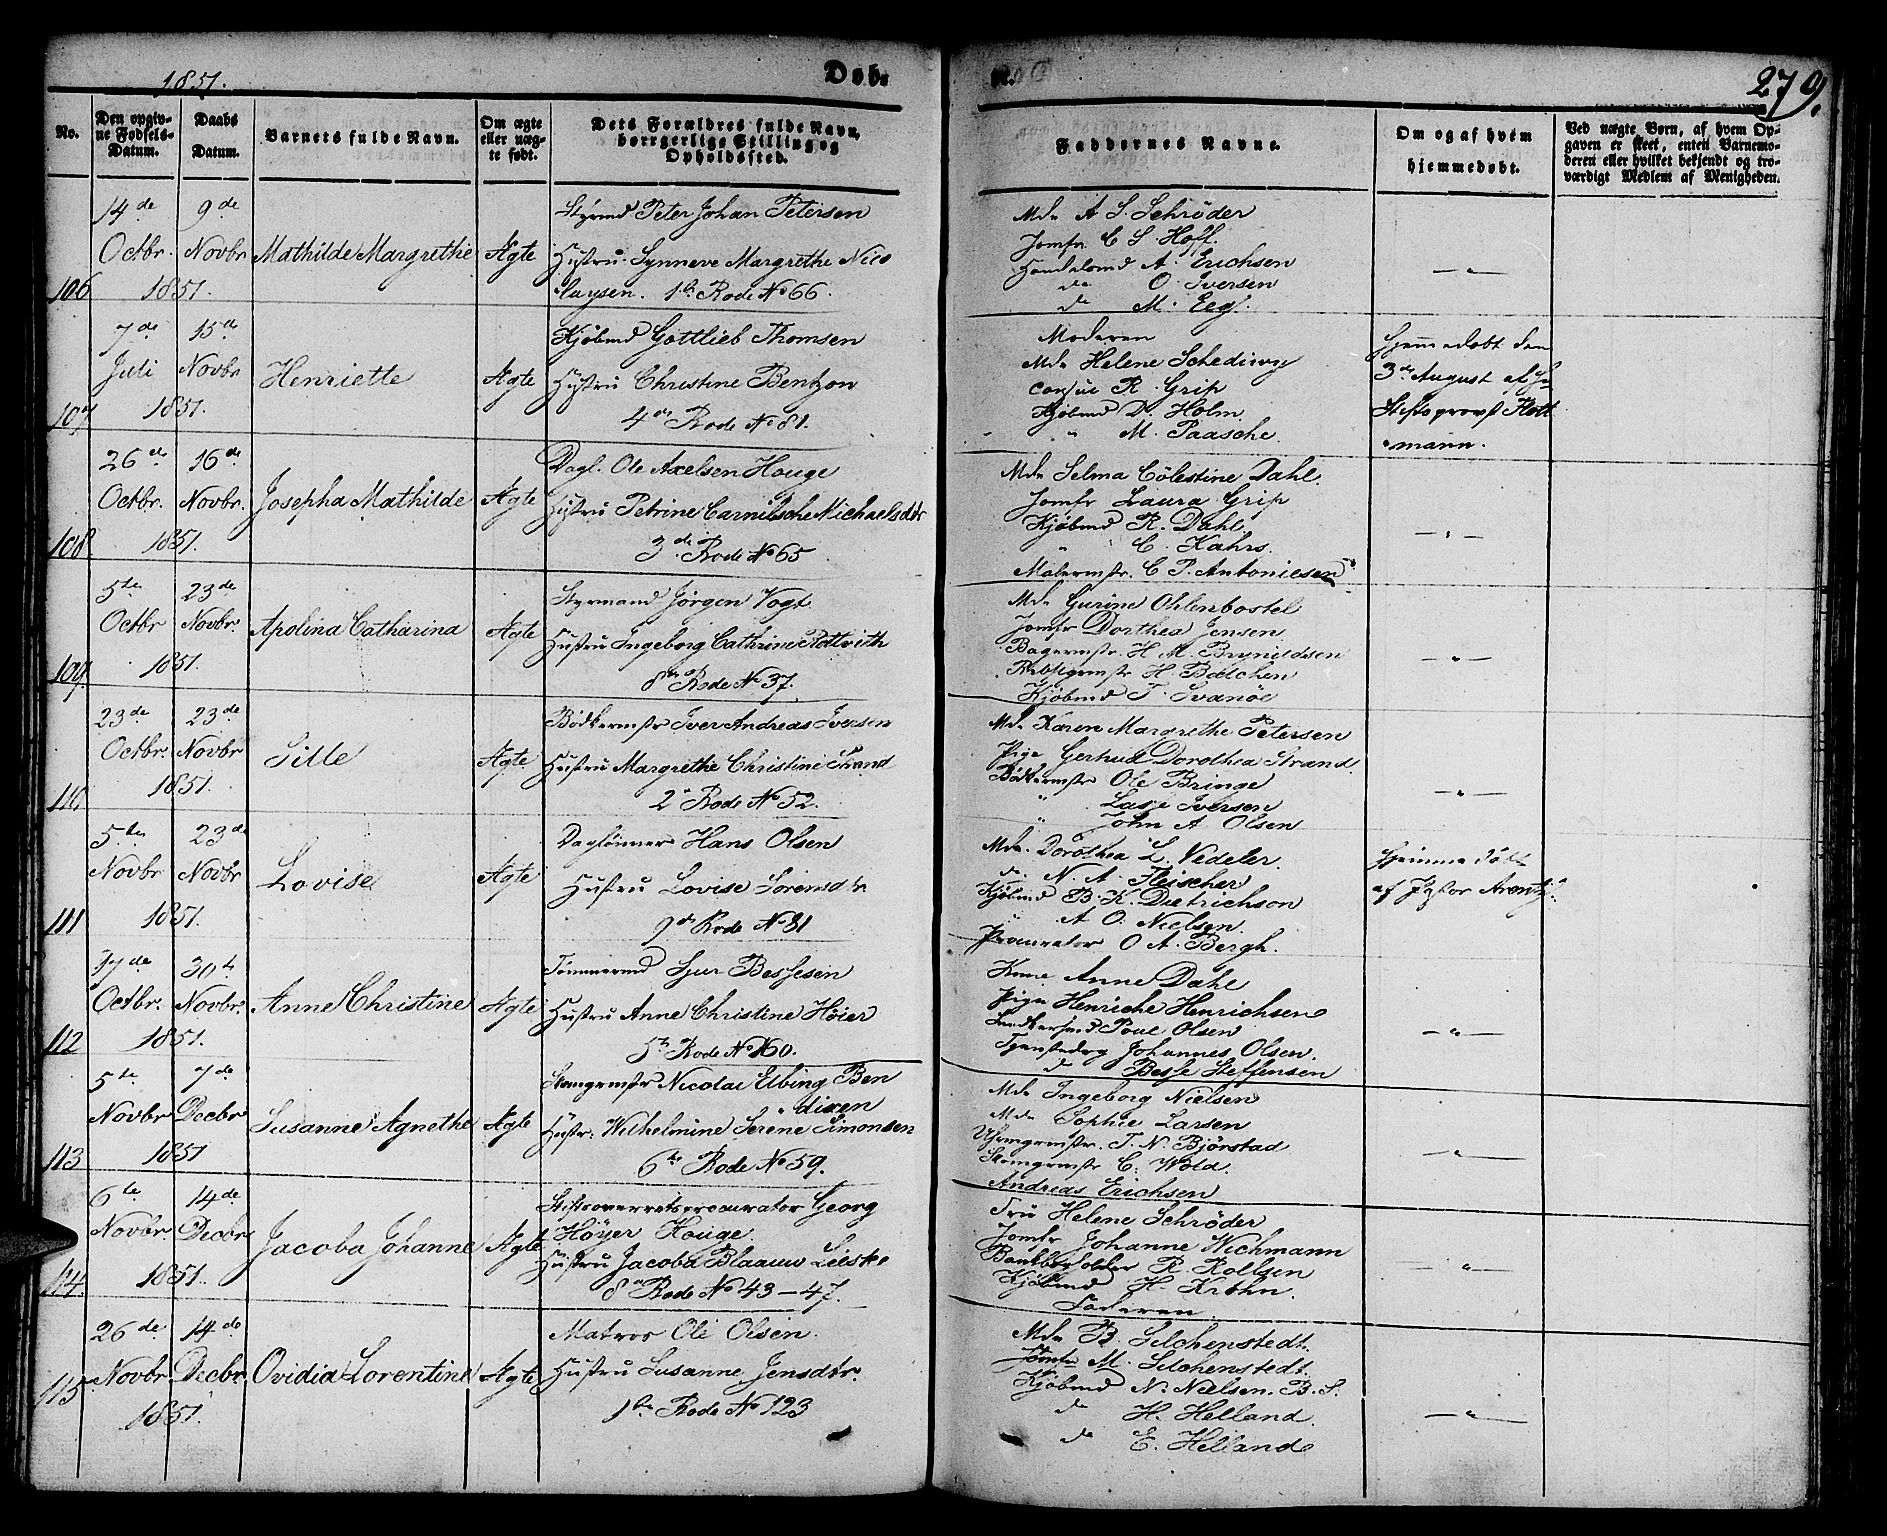 1851.
Døb-
te.
279.
No.
Den opgiv-
ne Fødsels-
Datum.
Daabs
Datum.
Barnets fulde Navn.
Om ægte
eller uæg-
te født.
Dets Forældres fulde Navn,
borrgerlige Stilling og
Opholdssted.
Faddernes Navne.
Om og af hvem
hjemmedøbt.
Ved uægte Børn, af hvem Op-
gaven er skeet, enten Barnemo-
deren eller hvilket bekjendt og tro-
værdigt Medlem af Menigheden.
106
14de Octbr. 1851.
9de Novbr
Mathilde Margrethe
Ægte
Styrmd Peter Johan Petersen
Hustru Synneve Margrethe Nico
laysen. 1te Rode No 66.
Mde A S. Schrøder
Jomfr. C S. Hoff.
Handelsmd A. Erichsen
do O. Iversen
do M. Eeg.
— „ —
107
7de Juli 1851.
15de Novbr
Henriette
Ægte
Kjøbmd Gottlieb Thomsen
Hustru Christine Bentzon
4de Rode No 81.
Moderen
Mde Helene Schediwy
Consul R. Grip
Kjøbmd D. Holm
„ M. Paasche.
Hjemmedøbt den
3de August af Hr
Stiftsprovst Kott
mann.
108
26de Octbr. 1851.
16de Novbr.
Josepha Mathilde
Ægte
Dagl. Ole Axelsen Houge
Hustru Petrine Michaelsdtr
3die Rode No 65
Mde Selma Cölestine Dahl.
Jomfr Laura Grip
Kjøbmd R. Dahl.
„ C. Kahrs.
Malermstr. C P. Antoniesen
— „ —
109.
5te Octbr 1851.
23de Novbr.
Apolina Catharina
Ægte
Styrmand Jørgen Vogt
Hustru Ingeborg Cathrine
8de Rode No 37.
Mde Gurine Ohlenbostel
Jomfr Dorthea Jensen
Bagermstr. H M. Brynildsen
H. Bøtchen
Kjøbmd T. Svanøe
— „ —
110
23de Octbr. 1851.
23de Novbr
Sille
Ægte
Bødkermstr Iver Andreas Iversen
Hustru Margrethe Christine Strand
2de Rode No 52.
Mde Karen Margrethe Petersen
Pige Gertrud Dorothea Strand.
Bødkermstr Ole Bringe
„ Lasse Iversen
„ John A. Olsen
— „ —
111
5te Novbr 1851.
23de Novbr
Lovise
Ægte
Dagløinner Hans Olsen
Hustru Lovise Sørensdtr
9de Rode No 81
Mde. Dorothea L. Vedeler.
do N. A. Fleischer
Kjøbmd B. K. Dietrichson
„ A O. Nielsen.
Procurator O A. Bergh.
Hjemmedøbt
af Pastor Arentz.
112
17de Octbr. 1851.
30te Novbr.
Anne Christine
Ægte
Tømmermd Sjur Bessesen
Hustru Anne Christine Höier
5te Rode No 160.
Kone Anne Dahl
Pige Henriche Henrichsen
Poul Olsen
Tjenestedrg Johannes Olsen.
do Besse Steffensen
— „ —
113
5te Novbr 1851
7de Decbr
Susanne Agnethe
Ægte
Skomgrmstr Nicolai Elbing Ben
dixen
Hustr. Wilhelmine Serene Simonsen
6te Rode No 59.
Mde Ingeborg Nielsen
Mde Sophie Larsen
Uhrmgrmstr. T. N. Bjørstad
Skomgrmstr C. Wold.
Andreas Erichsen
— „ —
114.
6te Novbr 1851.
14de Decbr
Jacoba Johanne
Ægte
Stiftsoverretsprocurator Georg
Höyer Houge.
Hustru Jacoba Blaauw Leiske
8de Rode No 43-47.
Fru Helene Schrøder
Jomfr Johanne Wichmann
Bankbogholder R. Rolfsen
Kjøbmd H. Krohn.
Faderen
— „ —
115
26de Novbr. 1851.
14de Decbr.
Ovidia Lorentine
Ægte
Matros Ole Olsen.
Hustru Susanne Jensdtr.
1te Rode No 123
Mde B. Selchenstedt.
Jomfr M. Selchenstedt.
Kjøbmd N. Nielsen. B. S.
do H. Helland.
do E. Helland
— „ —